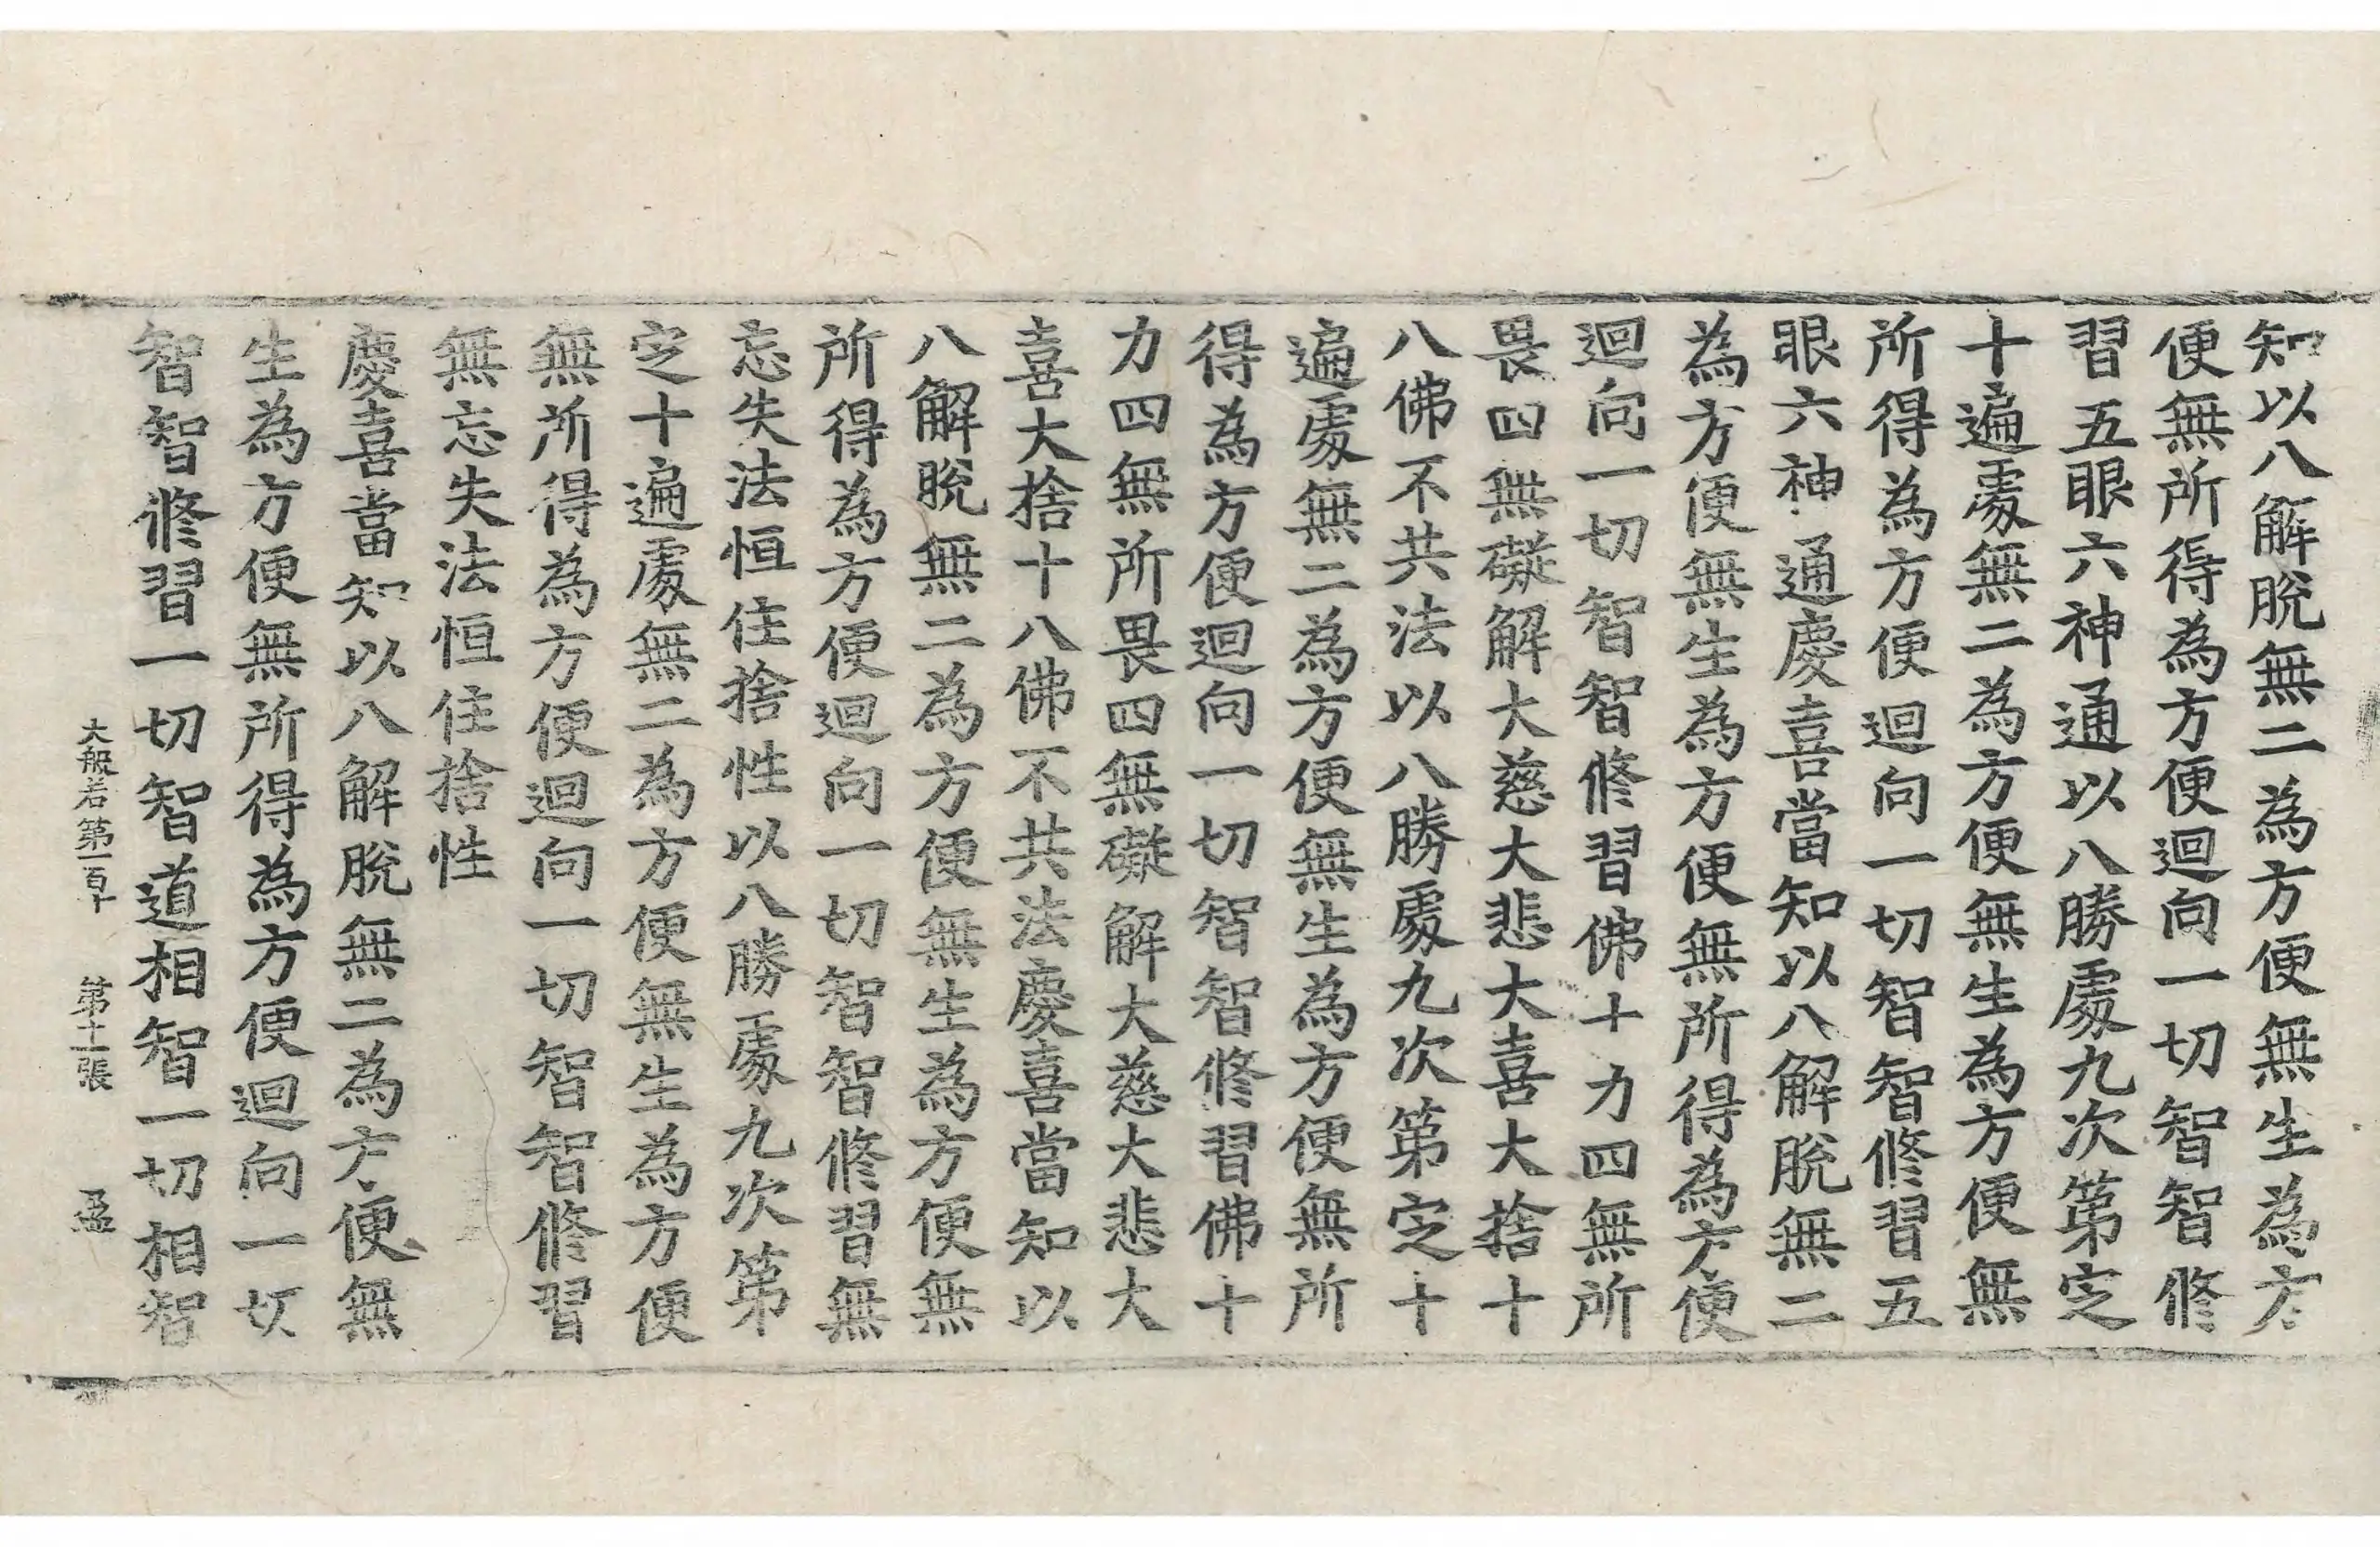 知以八解脫無二為方便無生為方
便無所得為方便迴向一切智智修
習五眼六神通以八勝處九次第定
十遍處無二為方便無生為方便無
所得為方便迴向一切智智修習五
眼六神通慶喜當知以八解脫無二
為方便無生為方便無所得為方便
迴向一切智智修習佛十力四無所
畏四無礙解大慈大悲大喜大捨十
八佛不共法以八勝處九次第定十
遍處無二為方便無生為方便無所
得為方便迴向一切智智修習佛十
力四無所畏四無礙解大慈大悲大
喜大捨十八佛不共法慶喜當知以
八解脫無二為方便無生為方便無
所得為方便迴向一切智智修習無
忘失法恒住捨性以八勝處九次第
定十遍處無二為方便無生為方便
無所得為方便迴向一切智智修習
無忘失法恒住捨性
慶喜當知以八解脫無二為方便無
生為方便無所得為方便迴向一切
智智修習一切智道相智一切相智
大般若第一百十 第十一張 盈